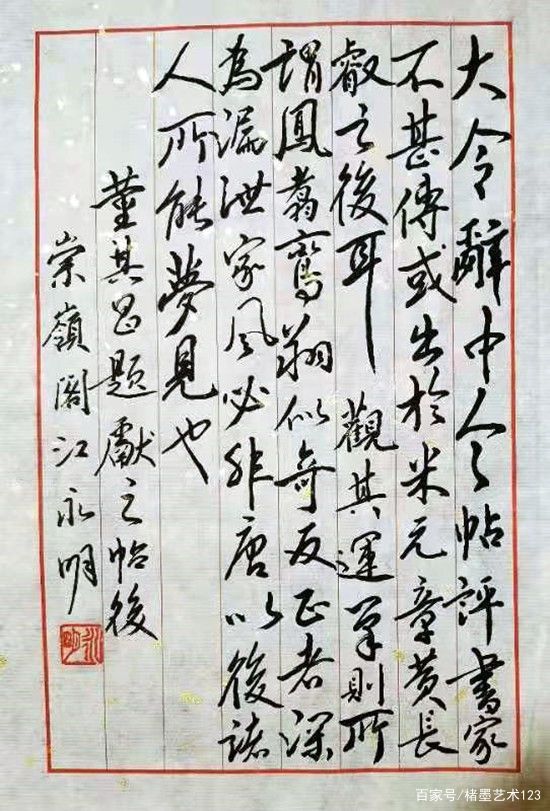 大令辭中令帖評書家
不甚傳或出於米元章黄長
睿之後耳 觀其運筆則所
謂鳳翥鸞翔似奇反正者深
為漏泄家風必非唐以後諸
人所能夢見也
董其昌題獻之帖後
崇嶺閣江永明
百家号/楮墨艺术123